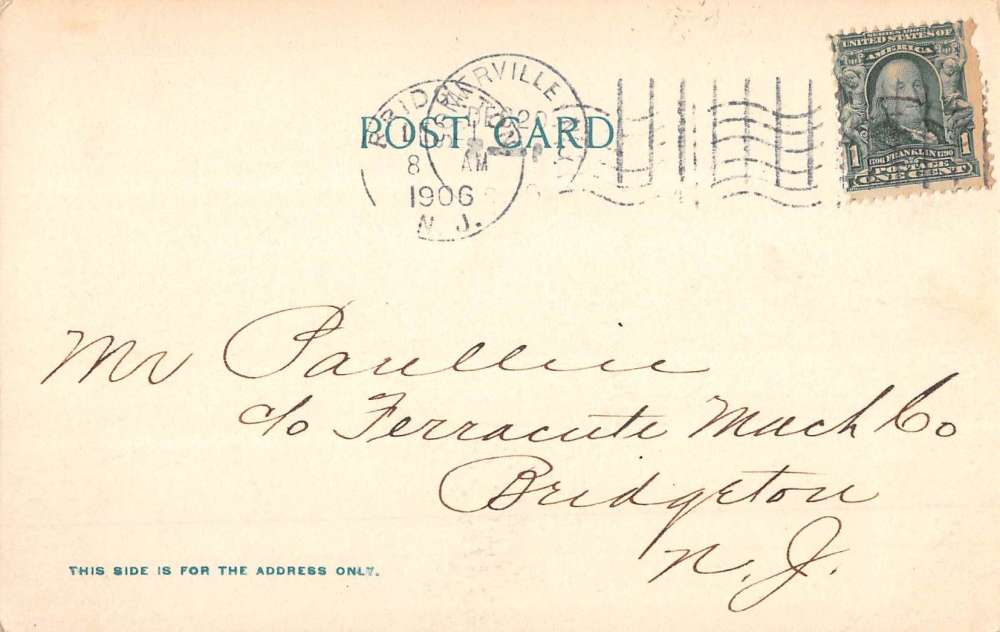 SERIES 1902
UNITED STATES OF
AMERICA
1 1706 FRANKLIN 1790 1
POSTAGE
ONE CENT
SOMERVILLE
POST CARD
8 AM
1906
N. J.
Mr Paullin
c/o Ferracute Mach Co
Bridgeton
N. J.
THIS SIDE IS FOR THE ADDRESS ONLY.